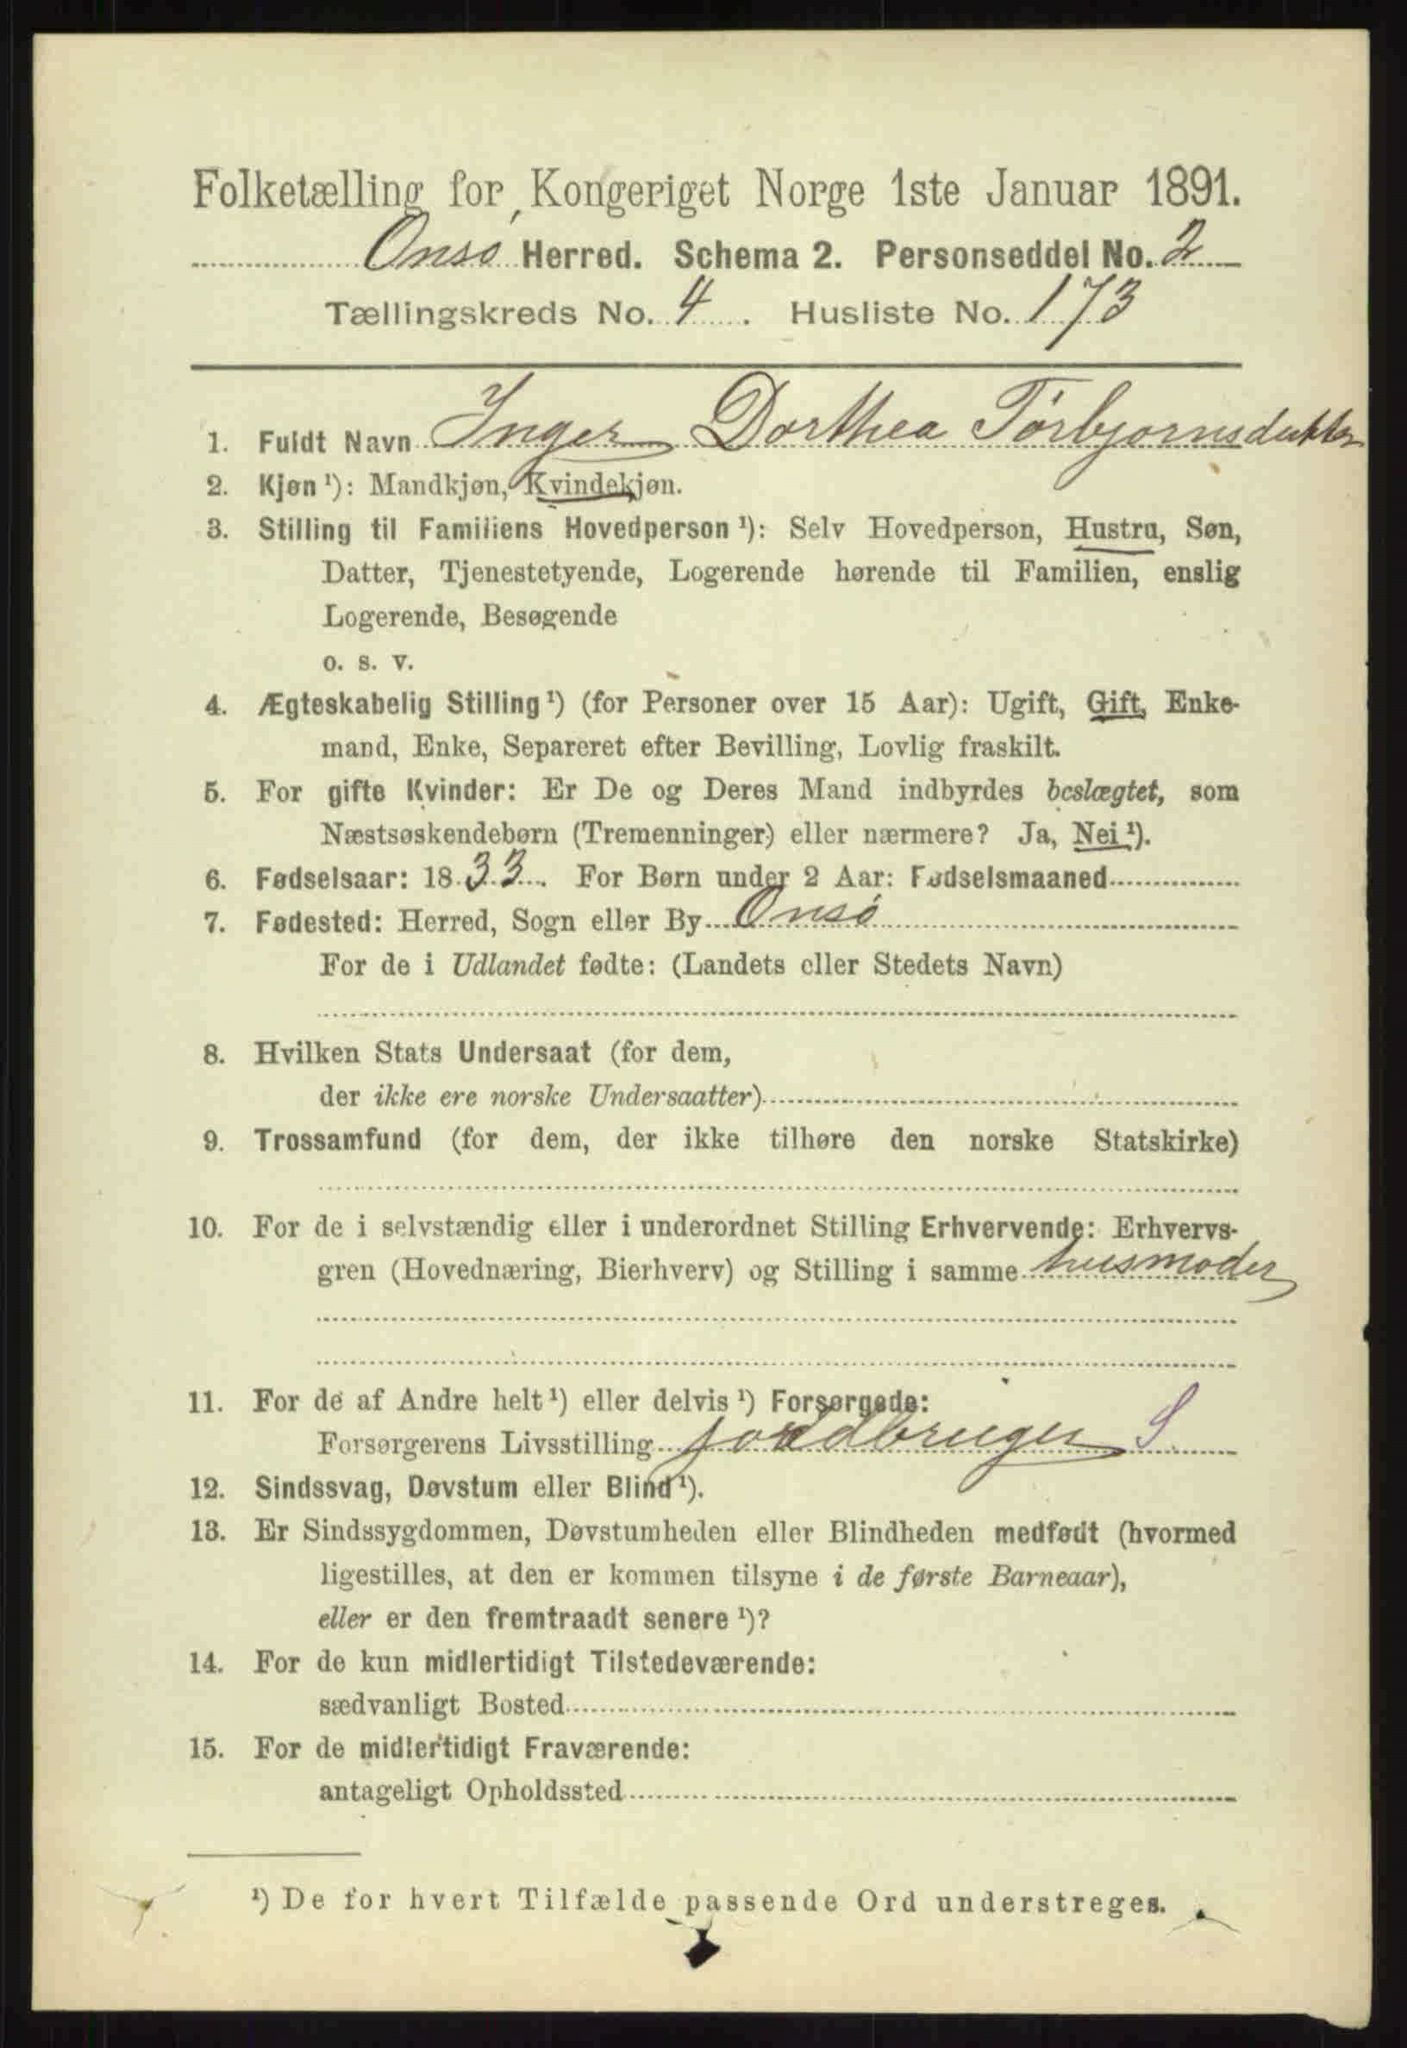 Folketælling for Kongeriget Norge 1ste Januar 1891.
Onsø Herred. Schema 2. Personseddel No. 2
Tællingskreds No. 4. Husliste No. 173
1. Fuldt Navn Inger Dorthea Torbjørnsdatter
2. Kjøn ¹): Mandkjøn, Kvindekjøn.
3. Stilling til Familiens Hovedperson ¹): Selv Hovedperson, Hustru, Søn,
Datter, Tjenestetyende, Logerende hørende til Familien, enslig
Logerende, Besøgende
o. s. v.
4. Ægteskabelig Stilling ¹) (for Personer over 15 Aar): Ugift, Gift, Enke-
mand, Enke, Separeret efter Bevilling, Lovlig fraskilt.
5. For gifte Kvinder: Er De og Deres Mand indbyrdes beslægtet, som
Næstsøskendebørn (Tremenninger) eller nærmere? Ja, Nei ¹).
6. Fødselsaar: 1833. For Børn under 2 Aar: Fødselsmaaned
7. Fødested: Herred, Sogn eller By Onsø
For de i Udlandet fødte: (Landets eller Stedets Navn)
8. Hvilken Stats Undersaat (for dem,
der ikke ere norske Undersaatter)
9. Trossamfund (for dem, der ikke tilhøre den norske Statskirke)
10. For de i selvstændig eller i underordnet Stilling Erhvervende: Erhvervs-
gren (Hovednæring, Bierhverv) og Stilling i samme husmoder
11. For de af Andre helt ¹) eller delvis ¹) Forsørgede:
Forsørgerens Livsstilling jordbruger S
12. Sindssvag, Døvstum eller Blind ¹).
13. Er Sindssygdommen, Døvstumheden eller Blindheden medfødt (hvormed
ligestilles, at den er kommen tilsyne i de første Barneaar),
eller er den fremtraadt senere ¹)?
14. For de kun midlertidigt Tilstedeværende:
sædvanligt Bosted
15. For de midlertidigt Fraværende:
antageligt Opholdssted
¹) De for hvert Tilfælde passende Ord understreges.